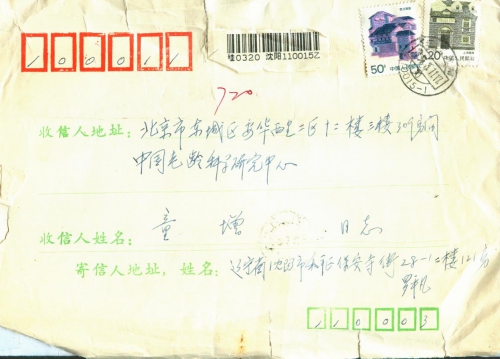 100011
挂0320 沈阳110015乙
50分 中国人民邮政
20分 中国人民邮政
720
收信人地址: 北京市东城区安华西里二区十二楼三楼309房间
中国老龄科学研究中心
收信人姓名: 童 增 同志
寄信人地址,姓名: 辽宁省沈阳市和平区保安寺街28-1-2楼121号
110003